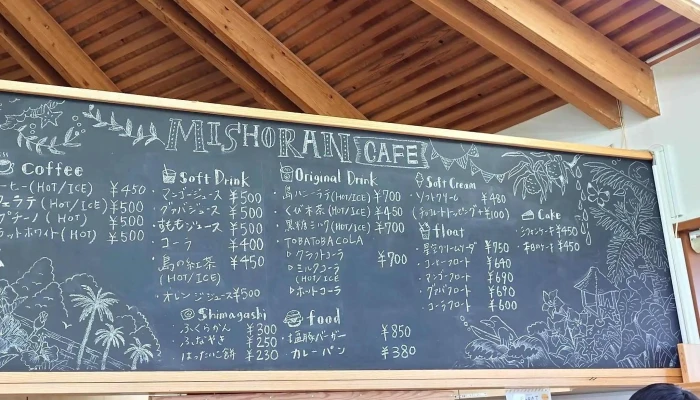 MISHORAN CAFE
Coffee
ーヒー(HOT/ICE) ¥450
フェラテ(HOT/ICE) ¥500
プチーノ(HOT) ¥500
ラットホワイト(HOT) ¥500
Soft Drink
・マンゴージュース ¥500
・グァバジュース ¥500
・すももジュース ¥500
・コーラ ¥400
・島の紅茶 ¥450
(HOT/ICE)
・オレンジジュース¥500
Shimagashi
・ふくらかん ¥300
・ふなやき ¥250
・はったいこ餅 ¥230
Original Drink
・島ハニーラテ(HOT/ICE) ¥700
・くび木茶(HOT/ICE) ¥450
・黒糖ミルク(HOT/ICE) ¥700
・TOBATOBA COLA
▷クラフトコーラ
▷ミルクコーラ ¥700
(HOT/ICE)
▷ホットコーラ
food
・塩豚バーガー ¥850
カレーパン ¥380
Soft Cream
・ソフトクリーム ¥480
(チョコレートトッピング+¥100)
float
・星空クリームソーダ ¥750
・コーヒーフロート ¥640
・マンゴーフロート ¥690
・グァバフロート ¥690
・コーラフロート ¥600
Cake
・シフォンケーキ ¥450
・本日のケーキ ¥450